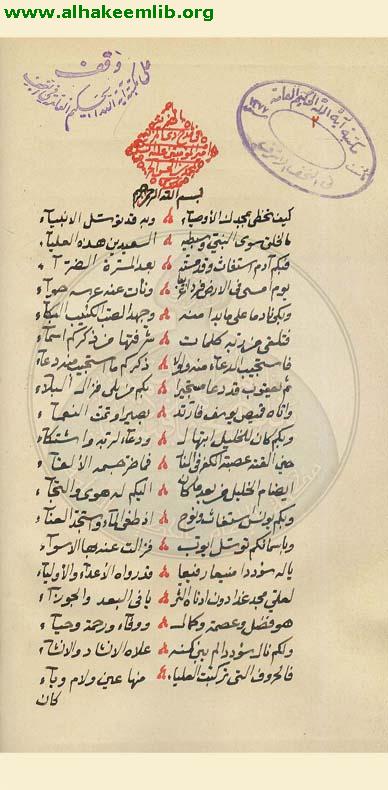 www.alhakeemlib.org
وقف
على مكتبة آية الله الحكيم العامة في النجف
مكتبة آية الله الحكيم العامة
في النجف الاشرف
٢
بسم الله الرحمن الرحيم
كيف تخطى بمجدك الأوصياء وبه قد توسل الانبياء
ما لخلق سوى النبي وسبطيه السعيدين هذه العلياء
فبكم آدم استغاث وقد مسته بعد المسرة الضراء
يوم امسى في الارض فردا غريبا ونأت عنه عرسه حواء
وبكى نادما على ما بدا منه وجهد الصب الكئيب البكاء
فتلقى من ربه كلمات شرفتها من ذكركم اسماء
فاستجيب الدعاء منه ولولا ذكركم ما استجيب منه دعاء
ثم يعقوب قد دعا مستجيرا بكم من بلى فزال البلاء
واتاه قميص يوسف فارتد بصيرا وتمت النعماء
وبكم كان للخليل ابتهال ودعاء لربه واشتكاء
حين القته عصبة الكفر في النار فاضر جسمه الالقاء
ايضام الخليل من بعد ما كان اليكم له هوى والتجاء
وبكم يونس استغاث ونوح اذ طغى الماء واستجد العناء
وباسمائكم توسل ايوب فزالت عنه بها الاسواء
ياله سؤددا منيعا رفيعا قد رواه الأعداء والأولياء
لعلي مجد غدا دون ادناه الثريا في البعد والجوزاء
هو فضل وعصمة وكمال ووفاء ورحمة وحياء
ولكم نال سؤددا لم يبن كنه علاه الانشاد والانشاء
فالحروف التي تركبت العلياء منها عين ولام وياء
كان